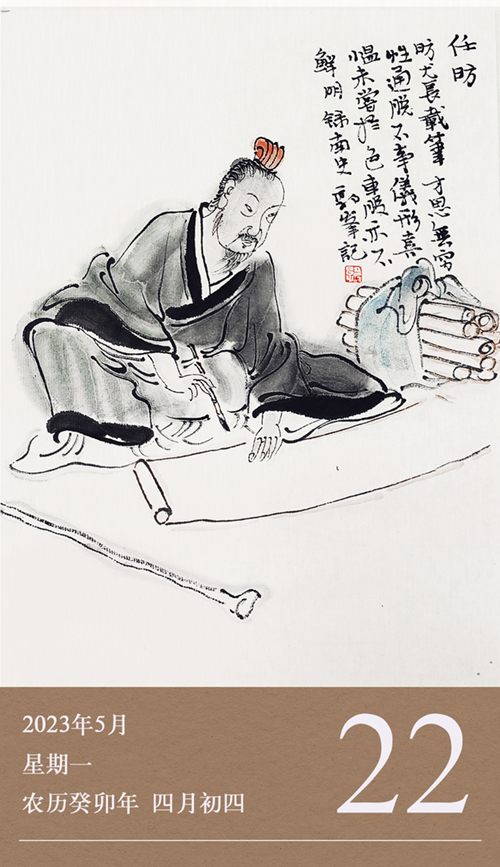 任昉
昉尤長載筆 才思無窮
性通脱不事儀形喜
愠未嘗於色車服亦不
鮮明 録南史 記
2023年5月
星期一
农历癸卯年 四月初四
22